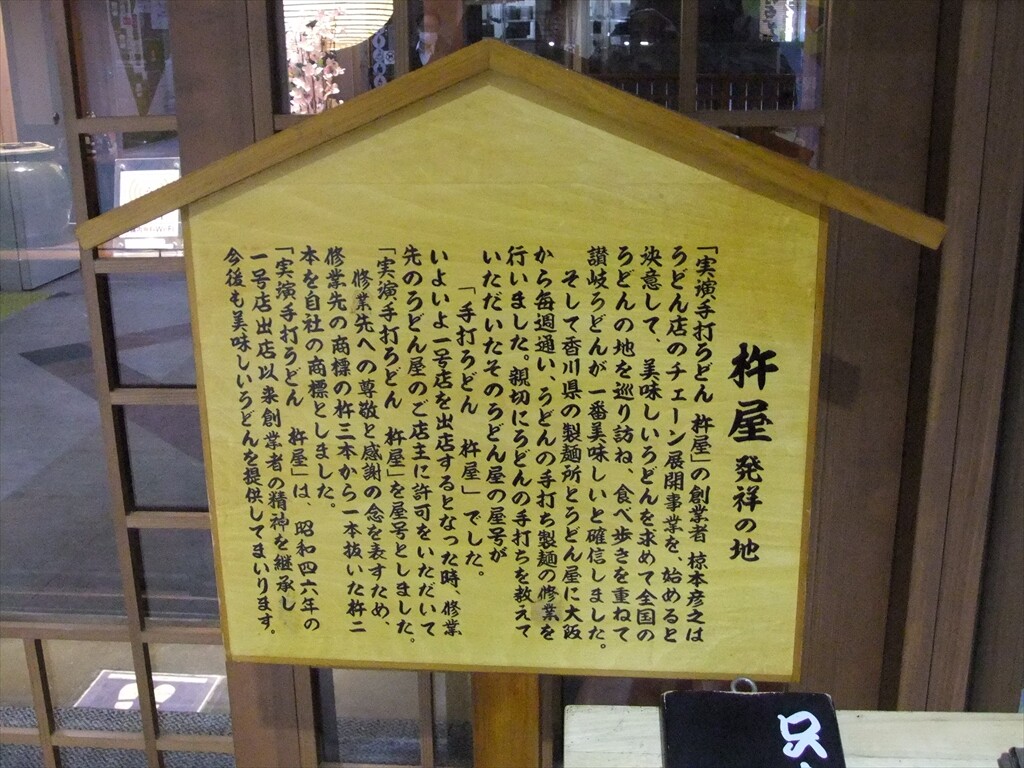 杵屋 発祥の地
「実演手打うどん 杵屋」の創業者 椋本彦之は
うどん店のチェーン展開事業を、始めると
決意して、美味しいうどんを求めて全国の
うどんの地を巡り訪ね、食べ歩きを重ねて
讃岐うどんが一番美味しいと確信しました。
そして香川県の製麺所とうどん屋に大阪
から毎週通い、うどんの手打ち製麺の修業を
行いました。親切にうどんの手打ちを教えて
いただいたそのうどん屋の屋号が
「手打うどん 杵屋」でした。
いよいよ一号店を出店するとなった時、修業
先のうどん屋のご店主に許可をいただいて
「実演手打うどん 杵屋」を屋号としました。
修業先への尊敬と感謝の念を表すため、
修業先の商標の杵三本から一本抜いた杵二
本を自社の商標としました。
「実演手打うどん 杵屋」は、昭和四六年の
一号店出店以来創業者の精神を継承し
今後も美味しいうどんを提供してまいります。